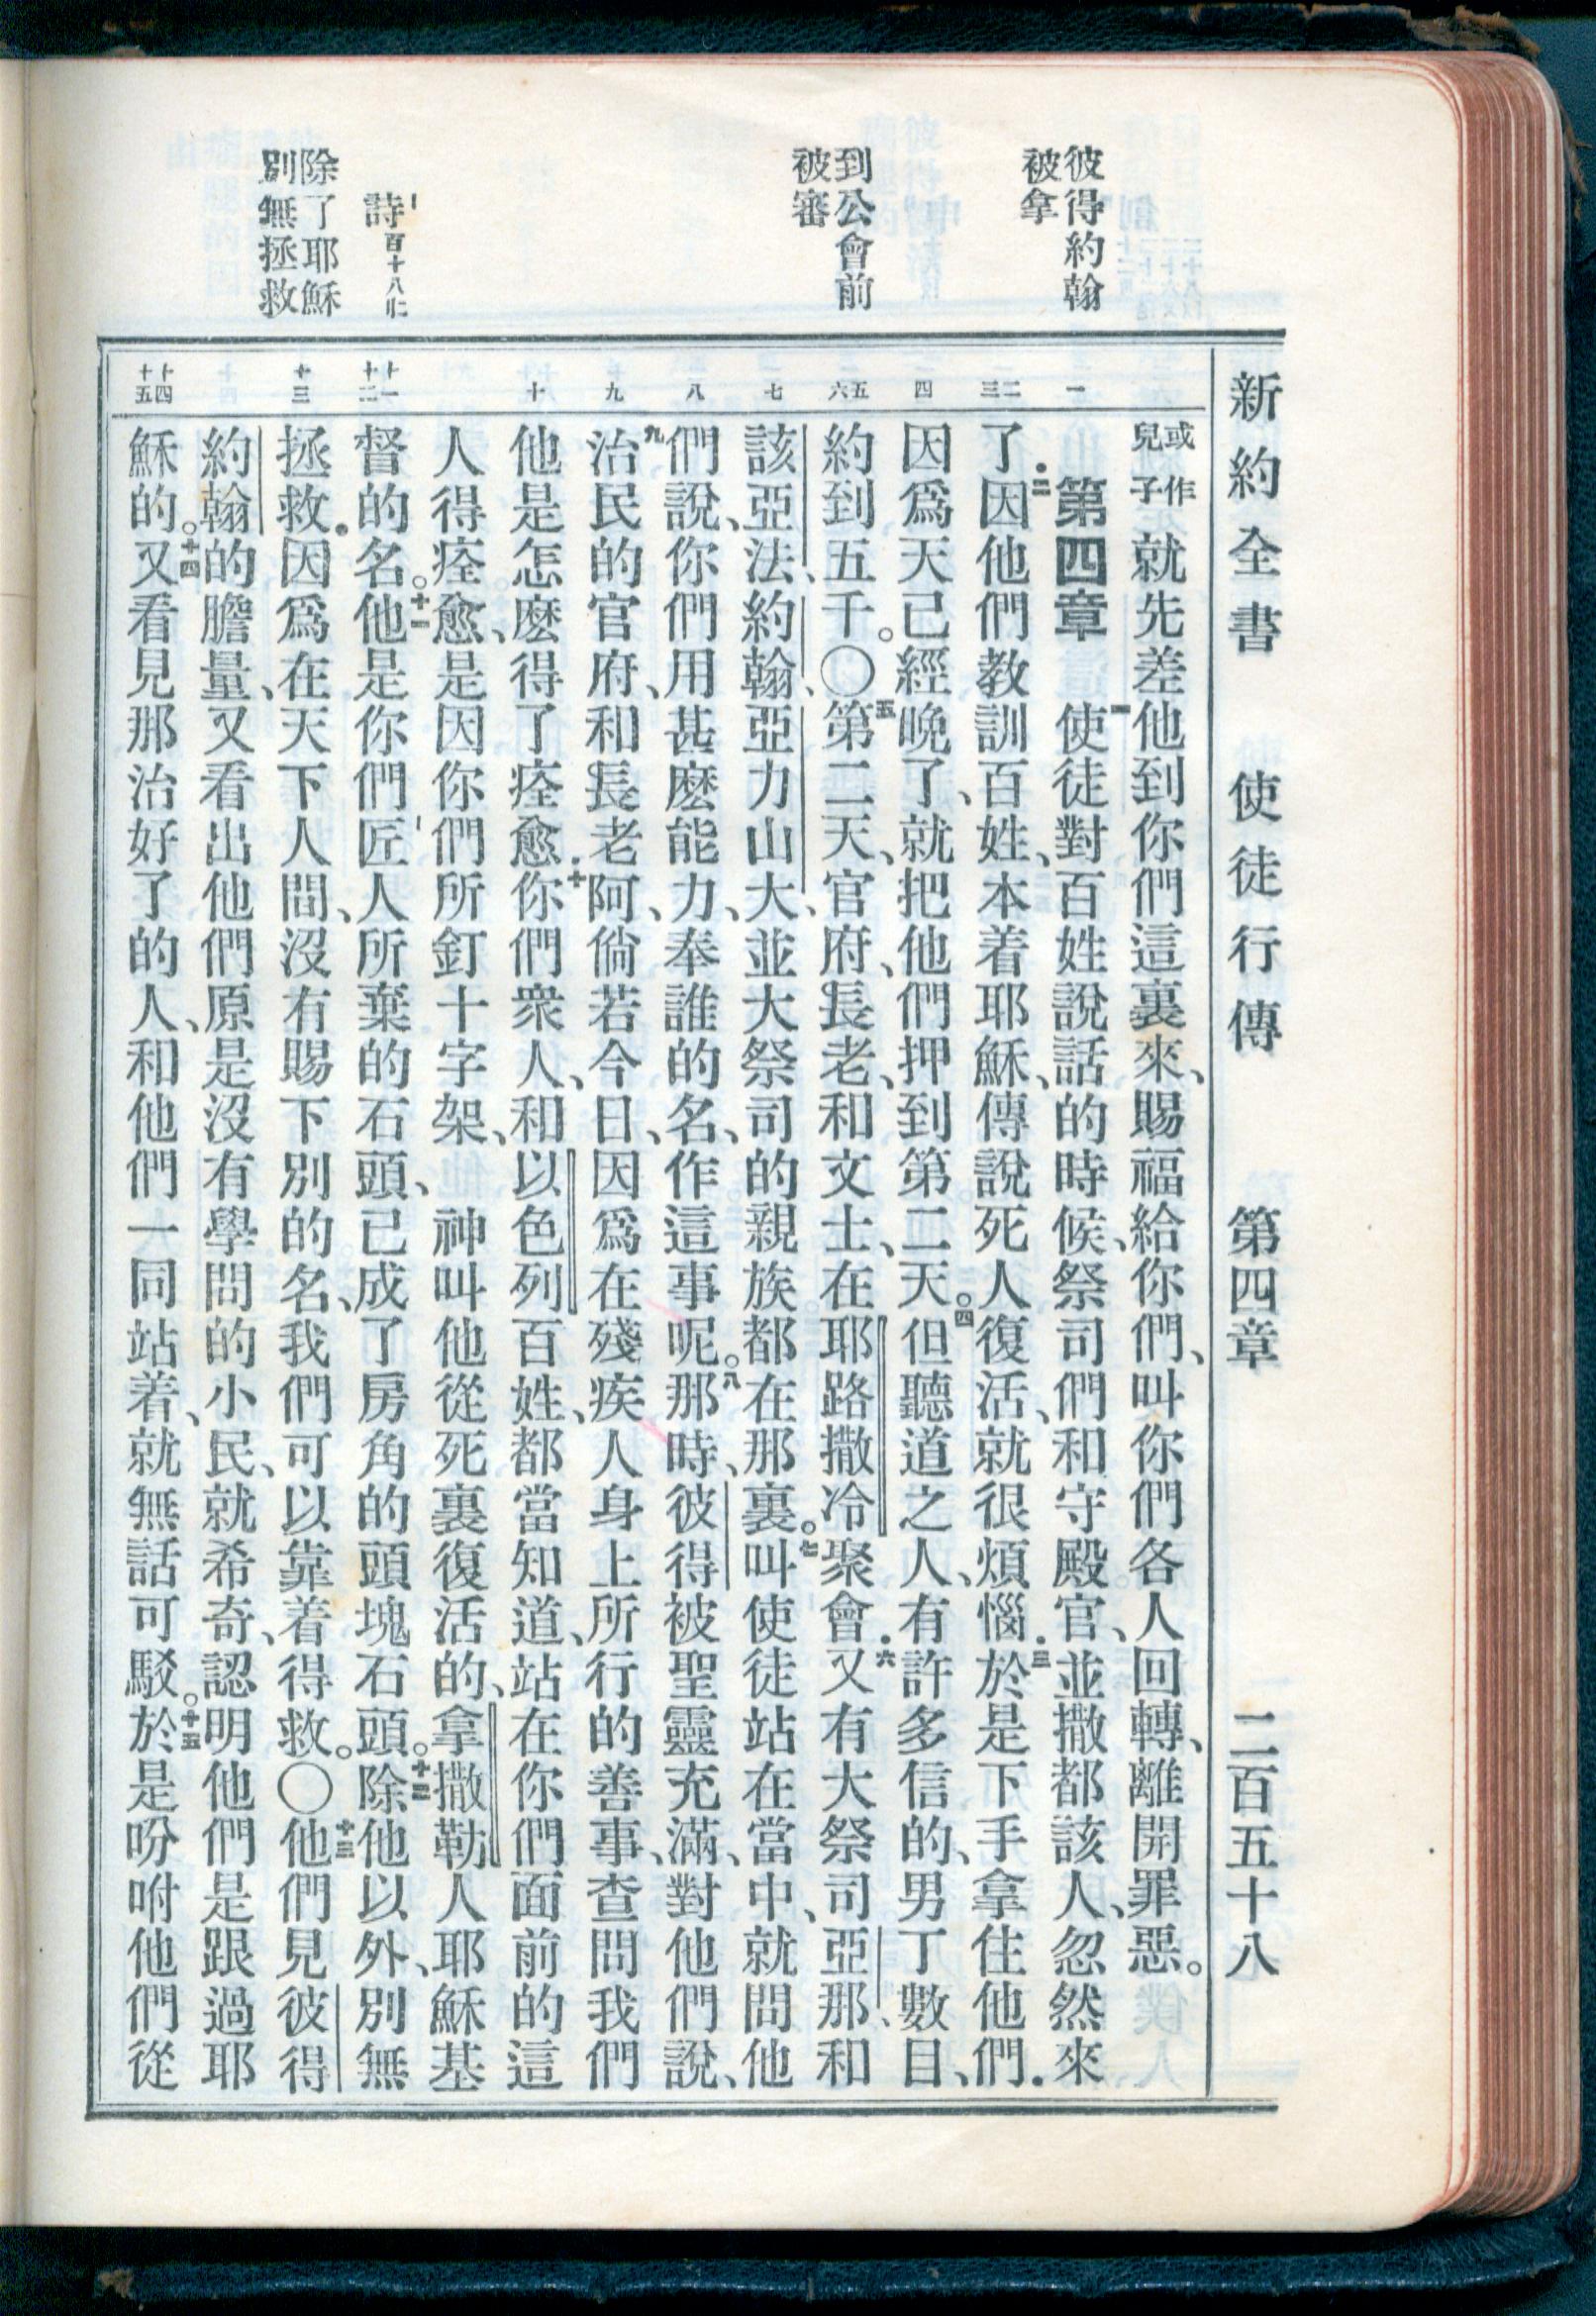 新約全書 使徒行傳 第四章 二百五十八
彼得約翰
被拿
到公會前
被審
詩百十八
除了耶穌
別無拯救
一
二三
四
五六
七
八
九
十
十一十二
十三
十四十五
或作兒子就先差他到你們這裏來、賜福給你們、叫你們各人回轉、離開罪惡。
第四章 一使徒對百姓說話的時候、祭司們和守殿官、並撒都該人、忽然來
了.二因他們教訓百姓、本着耶穌、傳說死人復活、就很煩惱.三於是下手拿住他們.
因爲天已經晚了、就把他們押到第二天。四但聽道之人、有許多信的、男丁數目、
約到五千。〇五第二天、官府、長老、和文士、在耶路撒冷聚會.六又有大祭司亞那、和
該亞法、約翰、亞力山大、並大祭司的親族都在那裏。七叫使徒站在當中、就問他
們說、你們用甚麽能力、奉誰的名、作這事呢。八那時、彼得被聖靈充滿、對他們說、
九治民的官府、和長老阿、倘若今日、因爲在殘疾人身上所行的善事、查問我們
他是怎麽得了痊愈.十你們衆人、和以色列百姓、都當知道、站在你們面前的這
人得痊愈、是因你們所釘十字架、神叫他從死裏復活的、拿撒勒人耶穌基
督的名。十一他是你們匠人所棄的石頭、已成了房角的頭塊石頭。十二除他以外、別無
拯救.因爲在天下人間、沒有賜下別的名、我們可以靠着得救。〇十三他們見彼得
約翰的膽量、又看出他們原是沒有學問的小民、就希奇、認明他們是跟過耶
穌的。十四又看見那治好了的人、和他們一同站着、就無話可駁。十五於是吩咐他們從